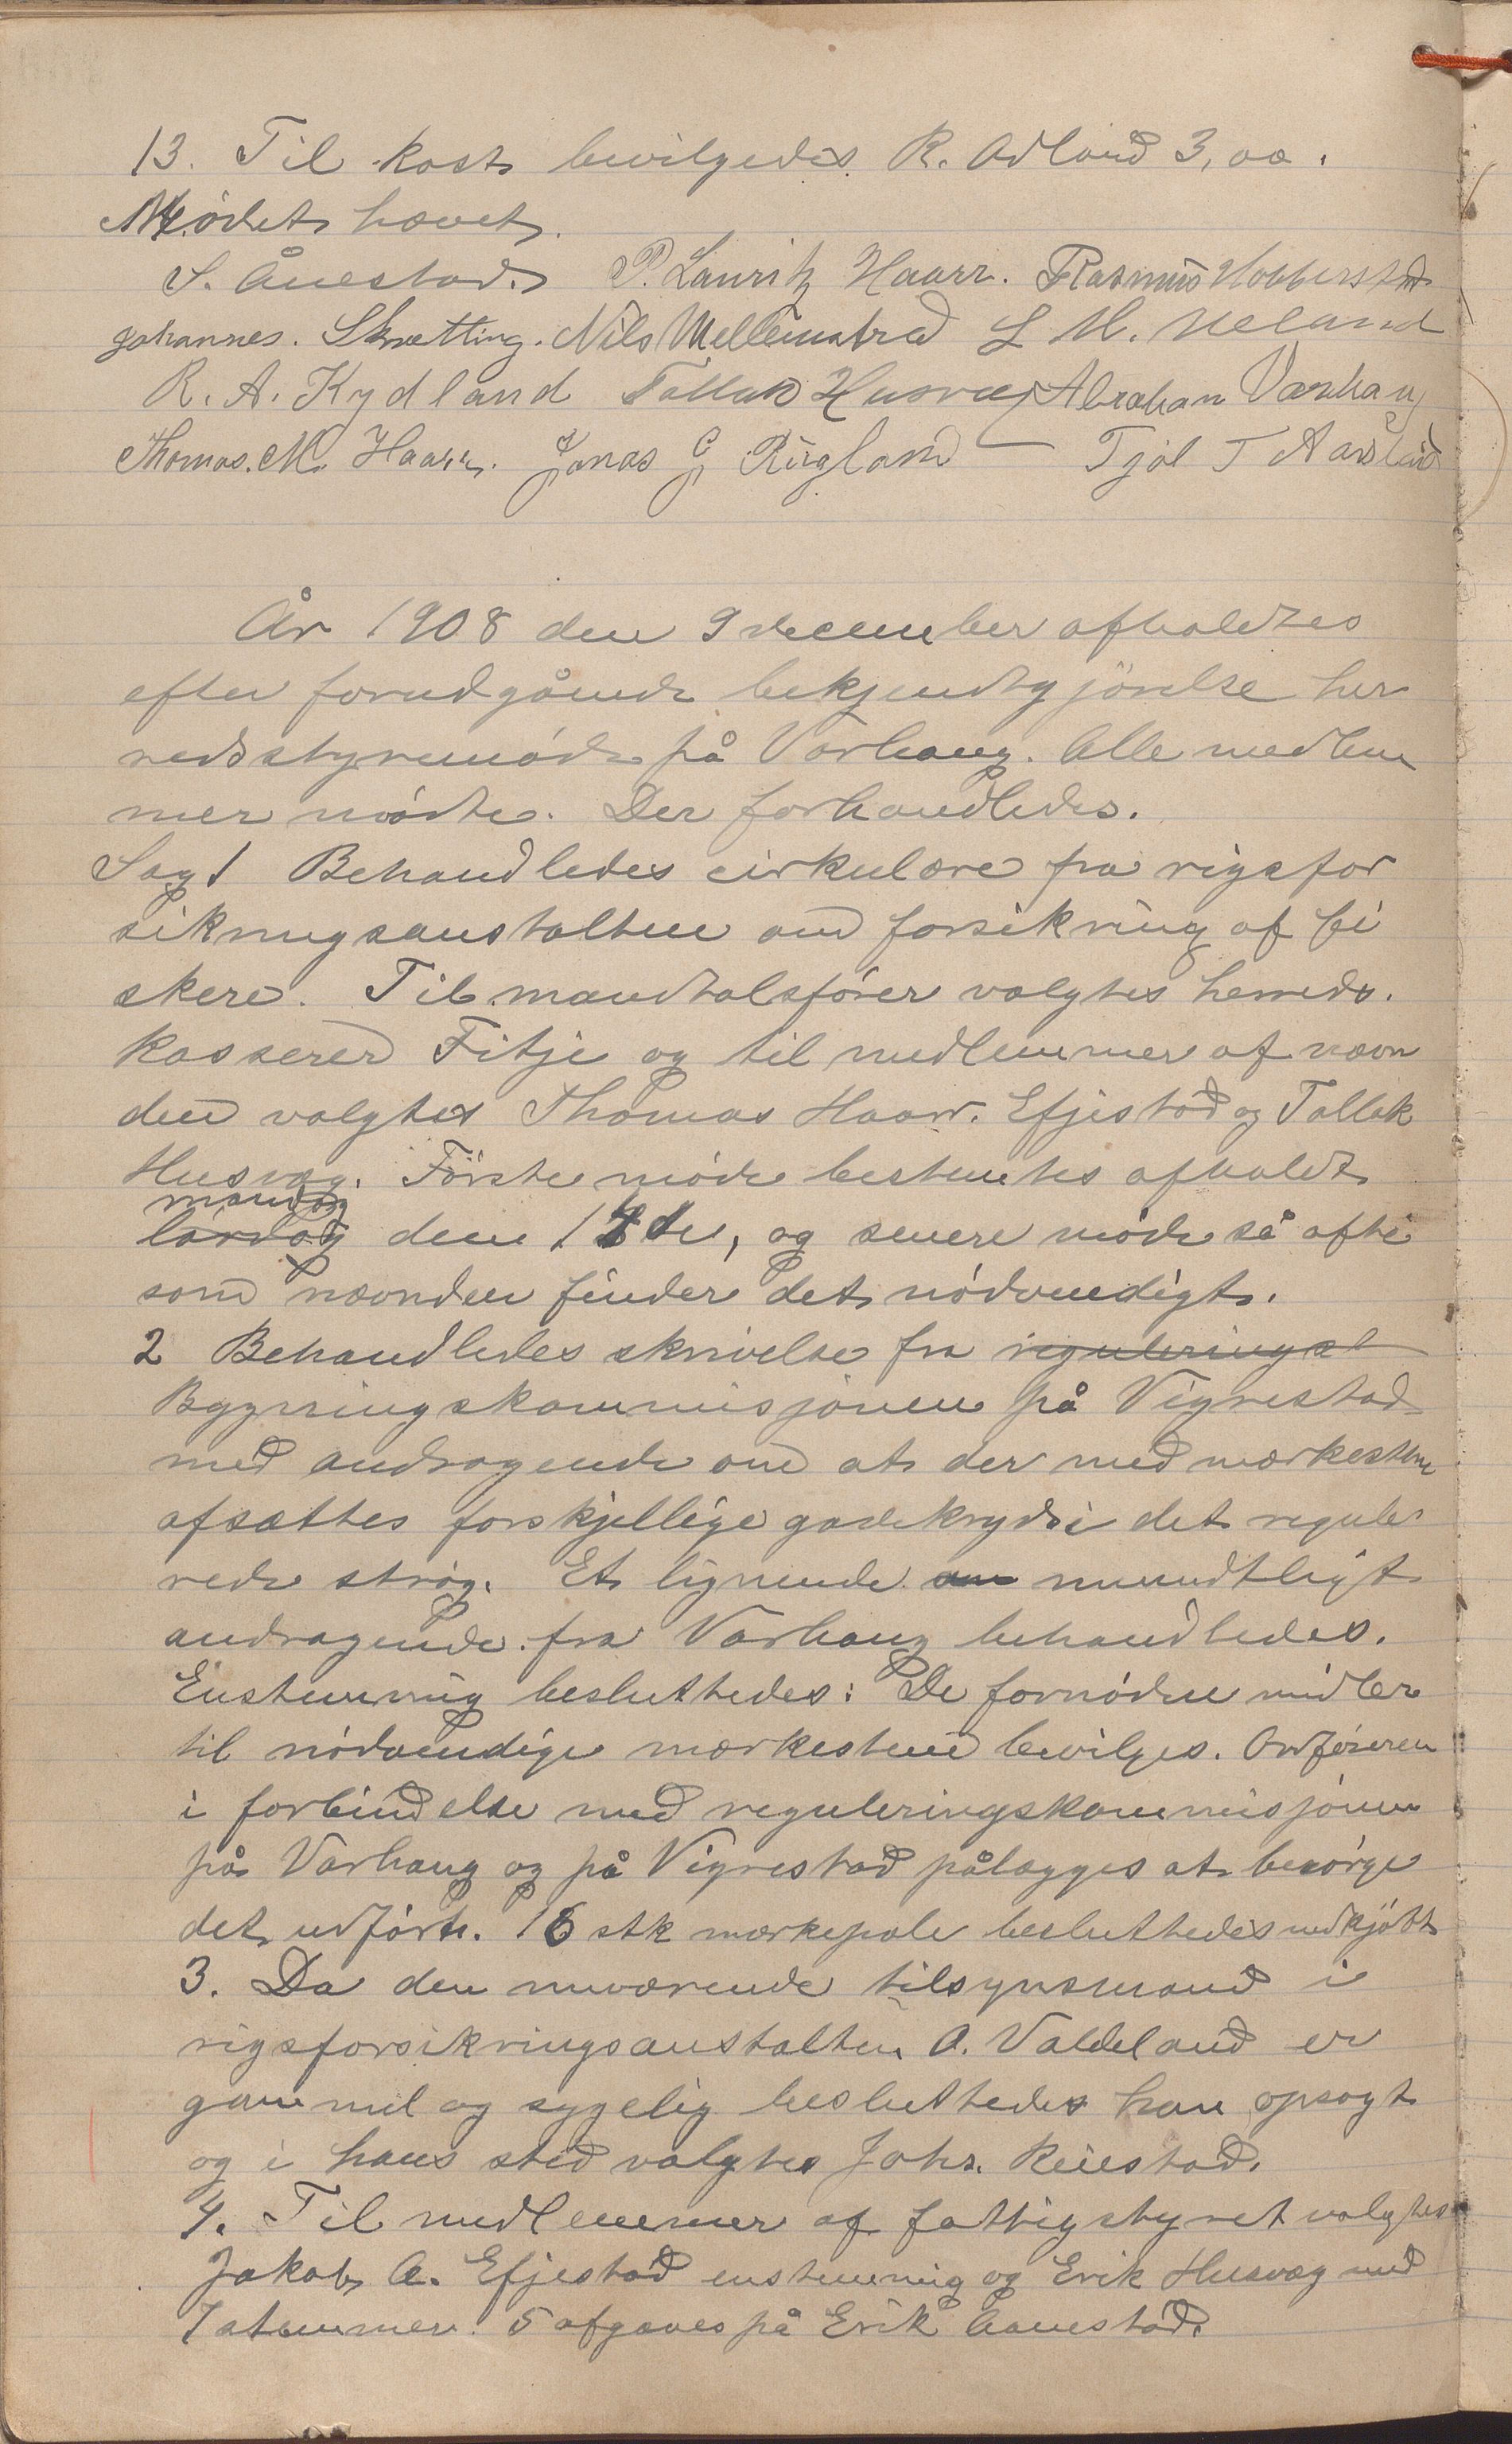 13. Til kost bevilgedes R. Adland 3,00.
Mødet hævet.
S. Ånestad. P. Lauritz Haarr. Rasmus Hobberstad
Johannes. Skretting. Nils Mellemstrad L M. Ueland
R. A. Kydland Tollak Husvæg Abraham Varhaug
Thomas. M. Haarr. Jonas G Rugland Tjøl T Aarslad
År 1908 den 9 december afholdtes
efter forudgående bekjendtgjörelse her
redsstyremøde på Varhaug. Alle medlem
mer mødte. Der forhandledes.
Sag 1 Behandledes cirkulære fra rigsfor
sikringsanstalten om forsikring af fi
skere. Til mandtalsfører valgtes herreds.
kasserer Fitje og til medlemmer af nævn
den valgtes Thomas Haarr. Efjestad og Tollak
Husvæg. Förste møde bestemtes afholdt
mandag
lørdag den 14de, og senere møde så ofte
som nævnden finder det nødvendigt.
2 Behandledes skrivelse fra regulerings
Bygningskommisjonen på Vigrestad
med andragende om at der med mærkesten
afsættes forskjellige gadekryds i det regule
rede strøg. Et lignende an mundtligt
andragende fra Varhaug behandledes.
Enstemmig besluttedes: De fornødne midler
til nødvendige mærkestene bevilges. Ordføreren
i forbindelse med reguleringskommisjonen
på Varhaug og på Vigrestad pålægges at besørge
det udført. 16 stk mærkepæle besluttedes indkjøbt
3. Da den nuværende tilsynsmand i
rigsforsikringsanstalten A. Valdeland er
gammel og sygelig besluttedes han opsagt
og i hans sted valgtes Johs. Reiestad.
4. Til medlemmer af fattigstyret valgtes
Jakob A. Efjestad enstemmig og Erik Husvæg med
7 stemmer. 5 afgaves på Erik Aanestad.